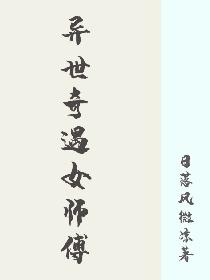 异世奇遇女师傅
日落风微凉著